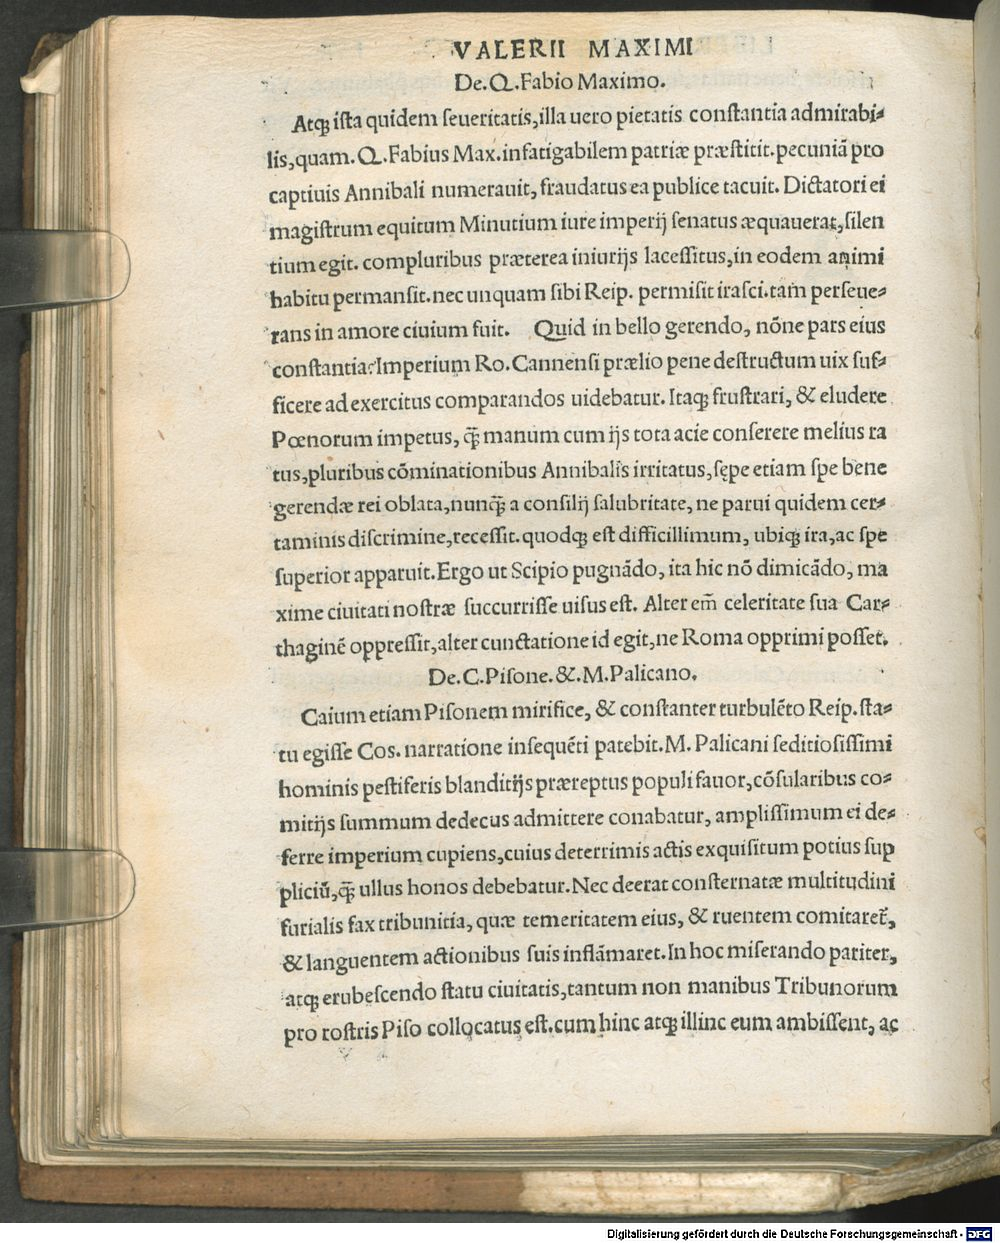 VALERII MAXIMI
De.Q.Fabio Maximo.
Atqꝫ ista quidem seueritatis,illa uero pietatis constantia admirabi⸗
lis,quam.Q.Fabius Max.infatigabilem patriæ præstitit.pecuniã pro
captiuis Annibali numerauit, fraudatus ea publice tacuit. Dictatori ei
magistrum equitum Minutium iure imperij senatus æquauerat,silen
tium egit. compluribus præterea iniurijs lacessitus,in eodem animi
habitu permansit.nec unquam sibi Reip. permisit irasci.tam perseue⸗
rans in amore ciuium fuit. Quid in bello gerendo, nõne pars eius
constantia?Imperium Ro.Cannensi prælio pene destructum uix suf⸗
ficere ad exercitus comparandos uidebatur. Itaqꝫ frustrari, & eludere
Pœnorum impetus, q̃ manum cum ijs tota acie conserere melius ra
tus,pluribus cõminationibus Annibalis irritatus,sępe etiam spe bene
gerendæ rei oblata,nunq̃ a consilij salubritate, ne parui quidem cer⸗
taminis discrimine,recessit.quodqꝫ est difficillimum, ubiqꝫ ira,ac spe
superior apparuit.Ergo ut Scipio pugnãdo, ita hic nõ dimicãdo, ma
xime ciuitati nostræ succurrisse uisus est. Alter em̃ celeritate sua Car⸗
thaginẽ oppressit,alter cunctatione id egit,ne Roma opprimi posset.
De.C.Pisone.&.M.Palicano.
Caium etiam Pisonem mirifice, & constanter turbulẽto Reip.sta⸗
tu egisse Cos. narratione insequẽti patebit.M. Palicani seditiosissimi
hominis pestiferis blanditijs præreptus populi fauor,cõsularibus co⸗
mitijs summum dedecus admittere conabatur, amplissimum ei de⸗
ferre imperium cupiens,cuius deterrimis actis exquisitum potius sup
pliciũ,q̃ ullus honos debebatur.Nec deerat consternatæ multitudini
furialis fax tribunitia, quæ temeritatem eius, & ruentem comitaret᷑,
& languentem actionibus suis inflãmaret.In hoc miserando pariter,
atqꝫ erubescendo statu ciuitatis,tantum non manibus Tribunorum
pro rostris Piso collocatus est.cum hinc atqꝫ illinc eum ambissent, ac
Digitalisierung gefördert durch die Deutsche Forschungsgemeinschaft - DFG